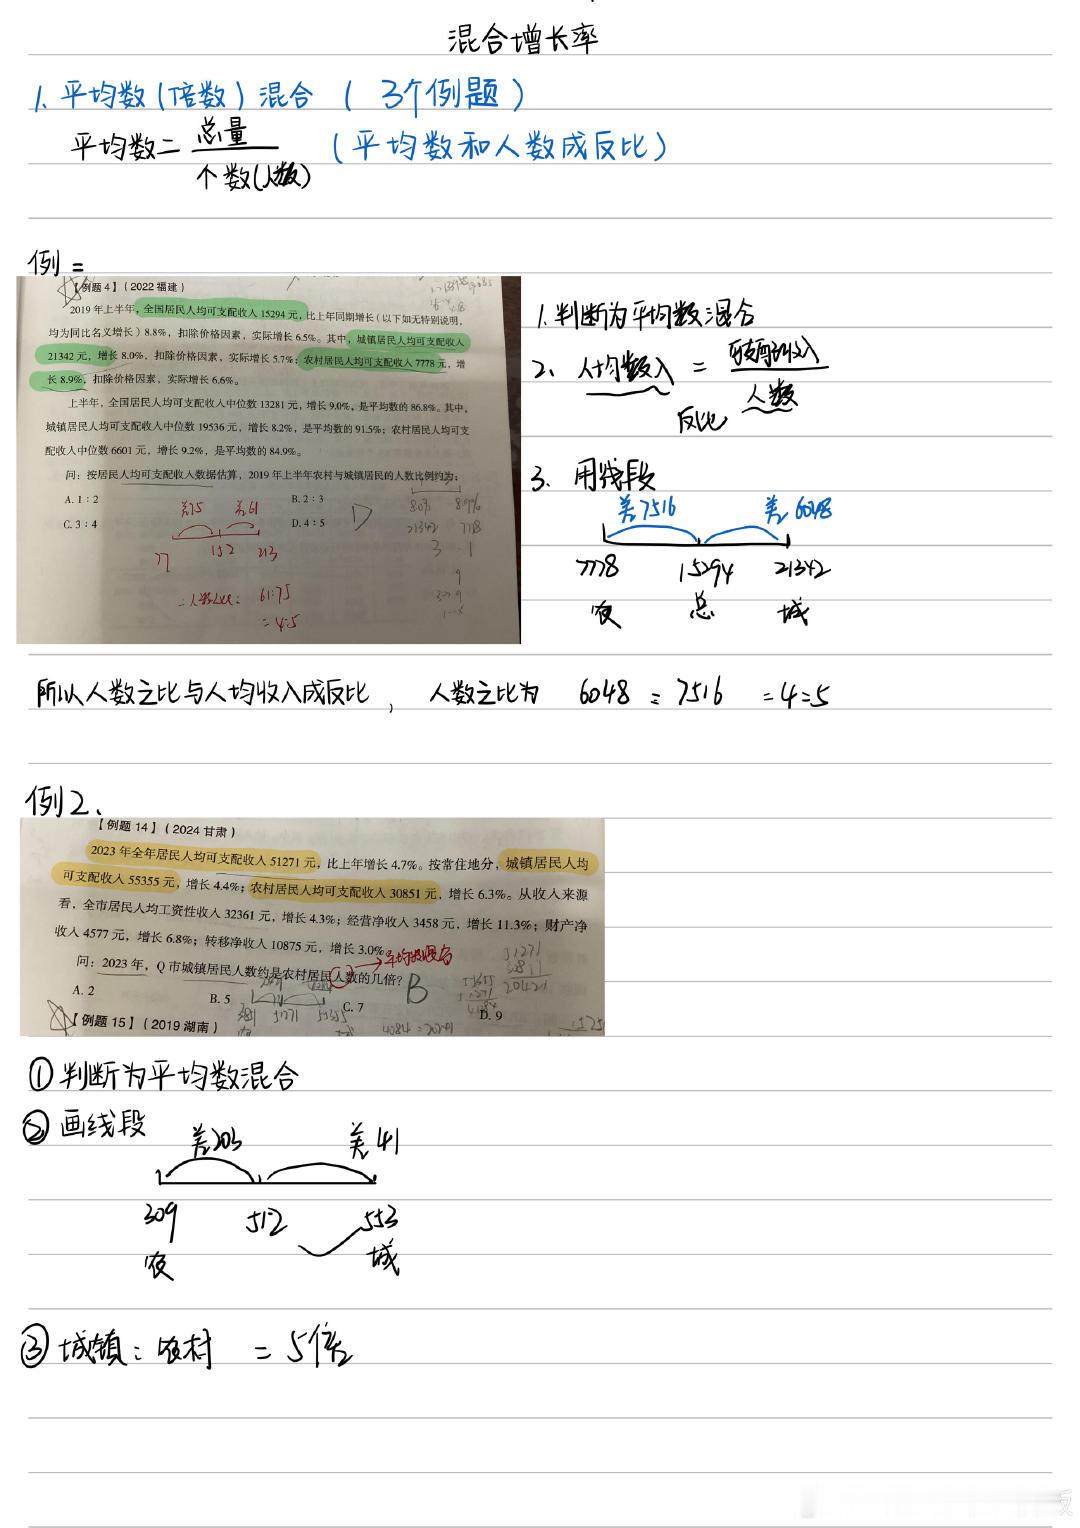 混合增长率
1. 平均数(倍数)混合 ( 3个例题 )
平均数 = 总量
个数(人数)
(平均数和人数成反比)
例:
【例题 4】(2022 福建)
2019 年上半年,全国居民人均可支配收入 15294 元,比上年同期增长(以下如无特别说明,
均为同比名义增长)8.8%,扣除价格因素,实际增长 6.5%。其中,城镇居民人均可支配收入
21342 元,增长 8.0%,扣除价格因素,实际增长 5.7%;农村居民人均可支配收入 7778 元,增
长 8.9%,扣除价格因素,实际增长 6.6%。
上半年,全国居民人均可支配收入中位数 13281 元,增长 9.0%,是平均数的 86.8%。其中,
城镇居民人均可支配收入中位数 19536 元,增长 8.2%,是平均数的 91.5%;农村居民人均可支
配收入中位数 6601 元,增长 9.2%,是平均数的 84.9%。
问:按居民人均可支配收入数据估算,2019 年上半年农村与城镇居民的人数比例约为:
A. 1:2
B. 2:3
C. 3:4
D. 4:5
差75 差61
77 152 213
61:75
= 4:5
1. 判断为平均数混合
2.
人数
反比
3. 用线段
差7516 差6048
7778 15294 21342
农 总 城
所以人数之比与人均收入成反比, 人数之比为 6048 : 7516 = 4:5
例2、
【例题 14】(2024 甘肃)
2023 年全年居民人均可支配收入 51271 元,比上年增长 4.7%。按常住地分,城镇居民人均
可支配收入 55355 元,增长 4.4%;农村居民人均可支配收入 30851 元,增长 6.3%。从收入来源
看,全市居民人均工资性收入 32361 元,增长 4.3%;经营净收入 3458 元,增长 11.3%;财产净
收入 4577 元,增长 6.8%;转移净收入 10875 元,增长 3.0%。
平均数混合
问:2023 年,Q 市城镇居民人数约是农村居民人数的几倍?
B
A. 2
B. 5
C. 7
D. 9
【例题 15】(2019 湖南)
① 判断为平均数混合
② 画线段
差203 差41
309 512 553
农 城
③ 城镇:农村 = 5倍